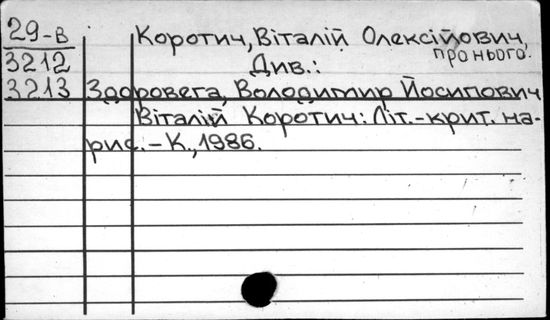 29-В Коротич, Віталій Олексійович,
про нього.
3212 Див.:
3213 Здоровега, Володимир Йосипович
Віталій Коротич: Літ.-крит. на-
рис.-К., 1986.